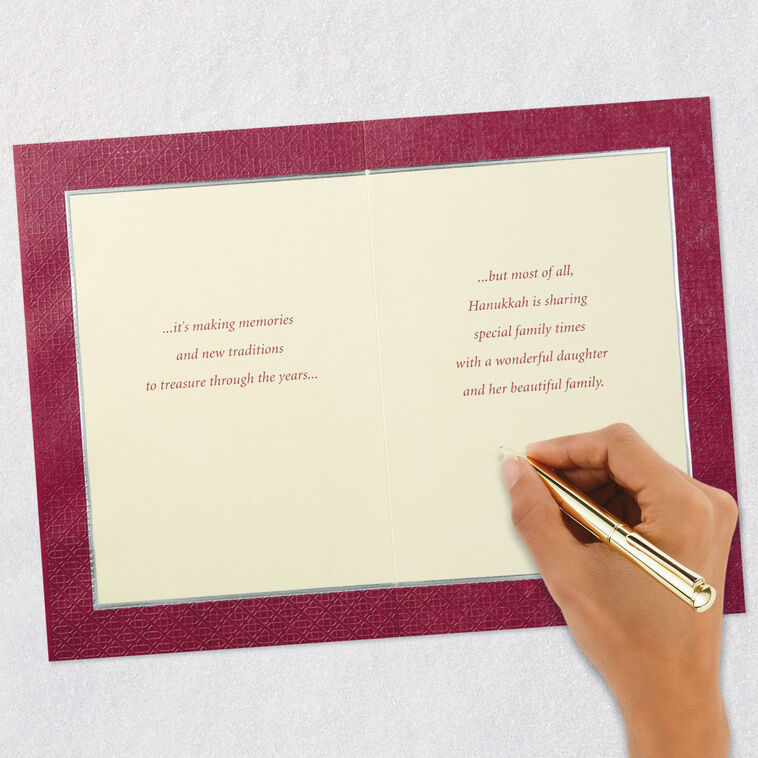 ...it's making memories
and new traditions
to treasure through the years...
...but most of all,
Hanukkah is sharing
special family times
with a wonderful daughter
and her beautiful family.